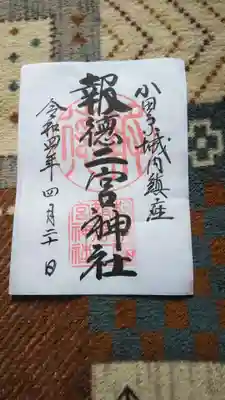 小田原城内鎮座
報徳二宮神社
令和四年四月二十日